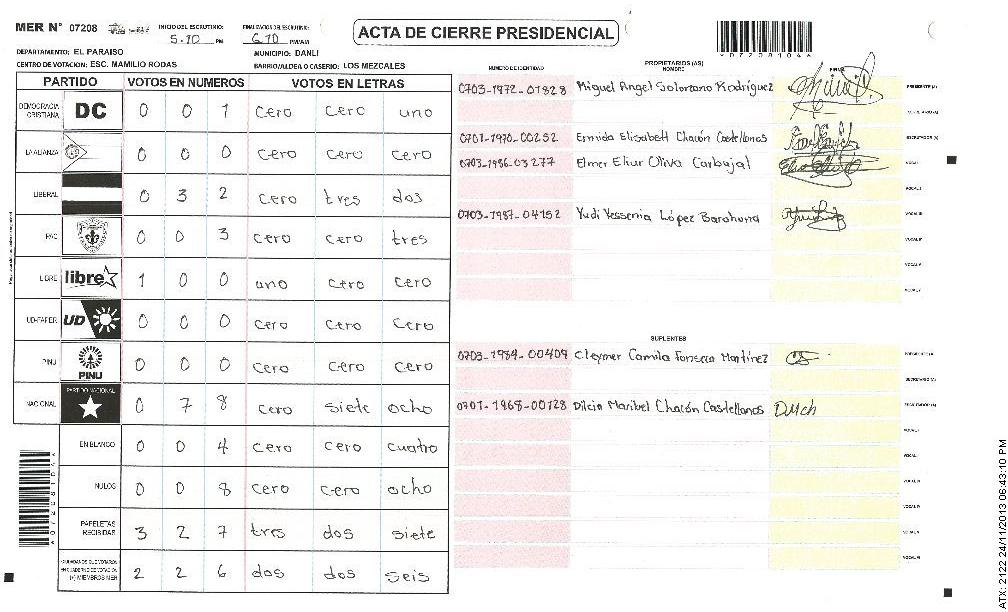 MER N° 07208 INICIO DEL ESCRUTINIO: 5:10 PM FINALIZACION DEL ESCRUTINIO: 6:10 PM/AM
ACTA DE CIERRE PRESIDENCIAL
DEPARTAMENTO: EL PARAISO MUNICIPIO: DANLI
CENTRO DE VOTACION: ESC. MAMILIO RODAS BARRIO/ALDEA O CASERIO: LOS MEZCALES
PARTIDO VOTOS EN NUMEROS VOTOS EN LETRAS
DEMOCRACIA CRISTIANA DC 0 0 1 cero cero uno
LA ALIANZA 0 0 0 cero cero cero
LIBERAL 0 3 2 cero tres dos
PAC 0 0 3 cero cero tres
LIBRE libre 1 0 0 uno cero cero
UD-FAPER UD 0 0 0 cero cero cero
PINU PINU 0 0 0 cero cero cero
NACIONAL PARTIDO NACIONAL 0 7 8 cero siete ocho
EN BLANCO 0 0 4 cero cero cuatro
NULOS 0 0 8 cero cero ocho
PAPELETAS RECIBIDAS 3 2 7 tres dos siete
CIUDADANOS QUE VOTARON EN CUADERNO DE VOTACION (+) MIEMBROS MER 2 2 6 dos dos seis
NUMERO DE IDENTIDAD PROPIETARIOS (AS) NOMBRE FIRMA
0703-1972-01828 Miguel Angel Solorzano Rodríguez PRESIDENTE (A)
SECRETARIO (A)
0701-1970-00252 Ermida Elisabeth Chacón Castellanos ESCRUTADOR (A)
0703-1986-03277 Elmer Eliar Oliva Carbajal VOCAL I
VOCAL II
0703-1987-04152 Yudi Yessenia López Barahona VOCAL III
VOCAL IV
VOCAL V
SUPLENTES
0703-1984-00409 Cleymer Camila Fonseca Martínez PRESIDENTE (A)
SECRETARIO (A)
0701-1968-00128 Dilcia Maribel Chacón Castellanos DMch ESCRUTADOR (A)
ATX: 2122 24/11/2013 06:43:10 PM